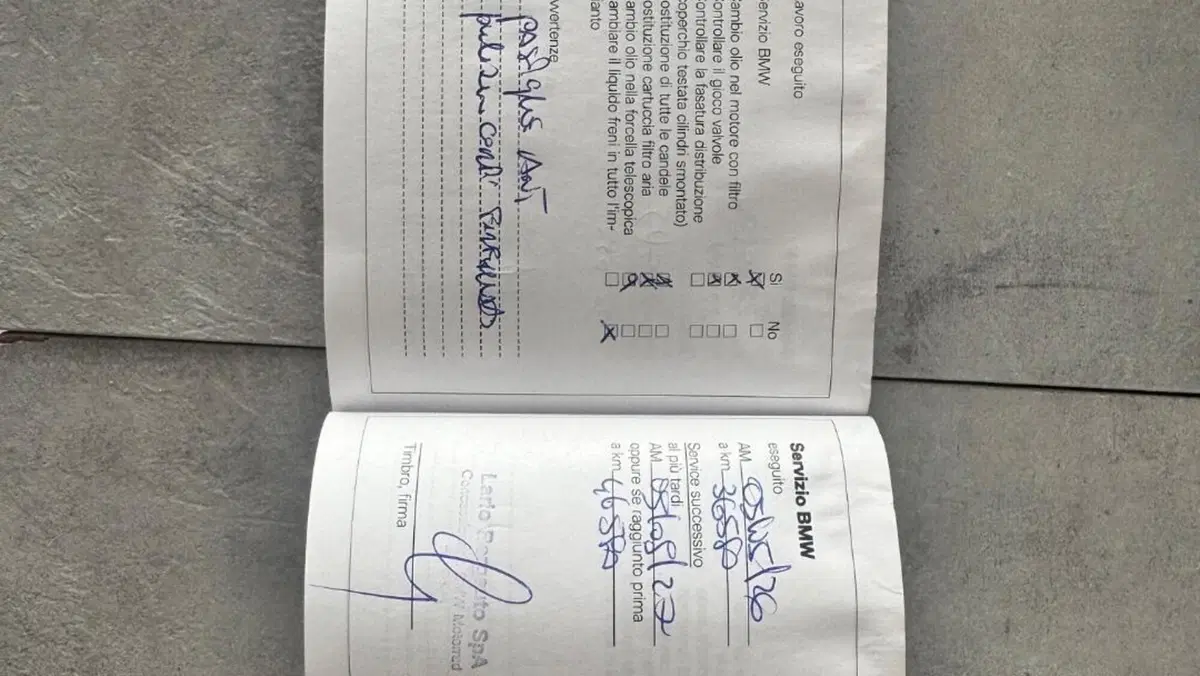 avoro eseguito
Sì No
ervizio BMW
ambio olio nel motore con filtro
ontrollare il gioco valvole
ontrollare la fasatura distribuzione
operchio testata cilindri smontato)
ostituzione di tutte le candele
ostituzione cartuccia filtro aria
ambio olio nella forcella telescopica
ambiare il liquido freni in tutto l'im-
ianto
vvertenze
Servizio BMW
eseguito
AM 05/05/26
a km 36580
Service successivo
al più tardi
AM 05/05/27
oppure se raggiunto prima
a km 46580
Lario SpA
Motorrad
Timbro, firma